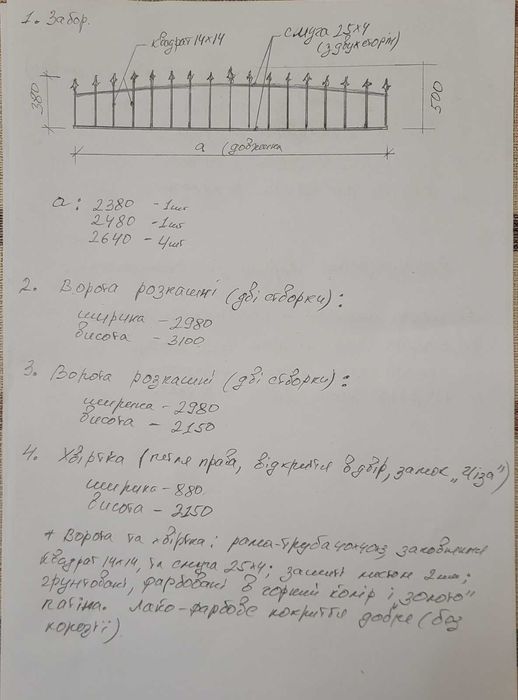 1. Забор.
квадрат 14х14
смуга 25х4
(з двух сторін)
380
500
а (довжина
а: 2380 - 1шт
2480 - 1шт
2640 - 4шт
2. Ворота розкашні (дві створки):
ширина - 2980
висота - 3100
3. Ворота розкашні (дві створки):
ширина - 2980
висота - 2150
4. Хвіртка (петля права, відкриття вдвір, замок "Чіза")
ширина - 880
висота - 2150
* Ворота та хвіртка: рама-труба заповнення
квадрат 14х14, та смуга 25х4; зашиті листом 2мм;
грунтовані, фарбовані в чорний колір і "золото"
патіна. Лако-фарбове покриття добре (без
корозії).